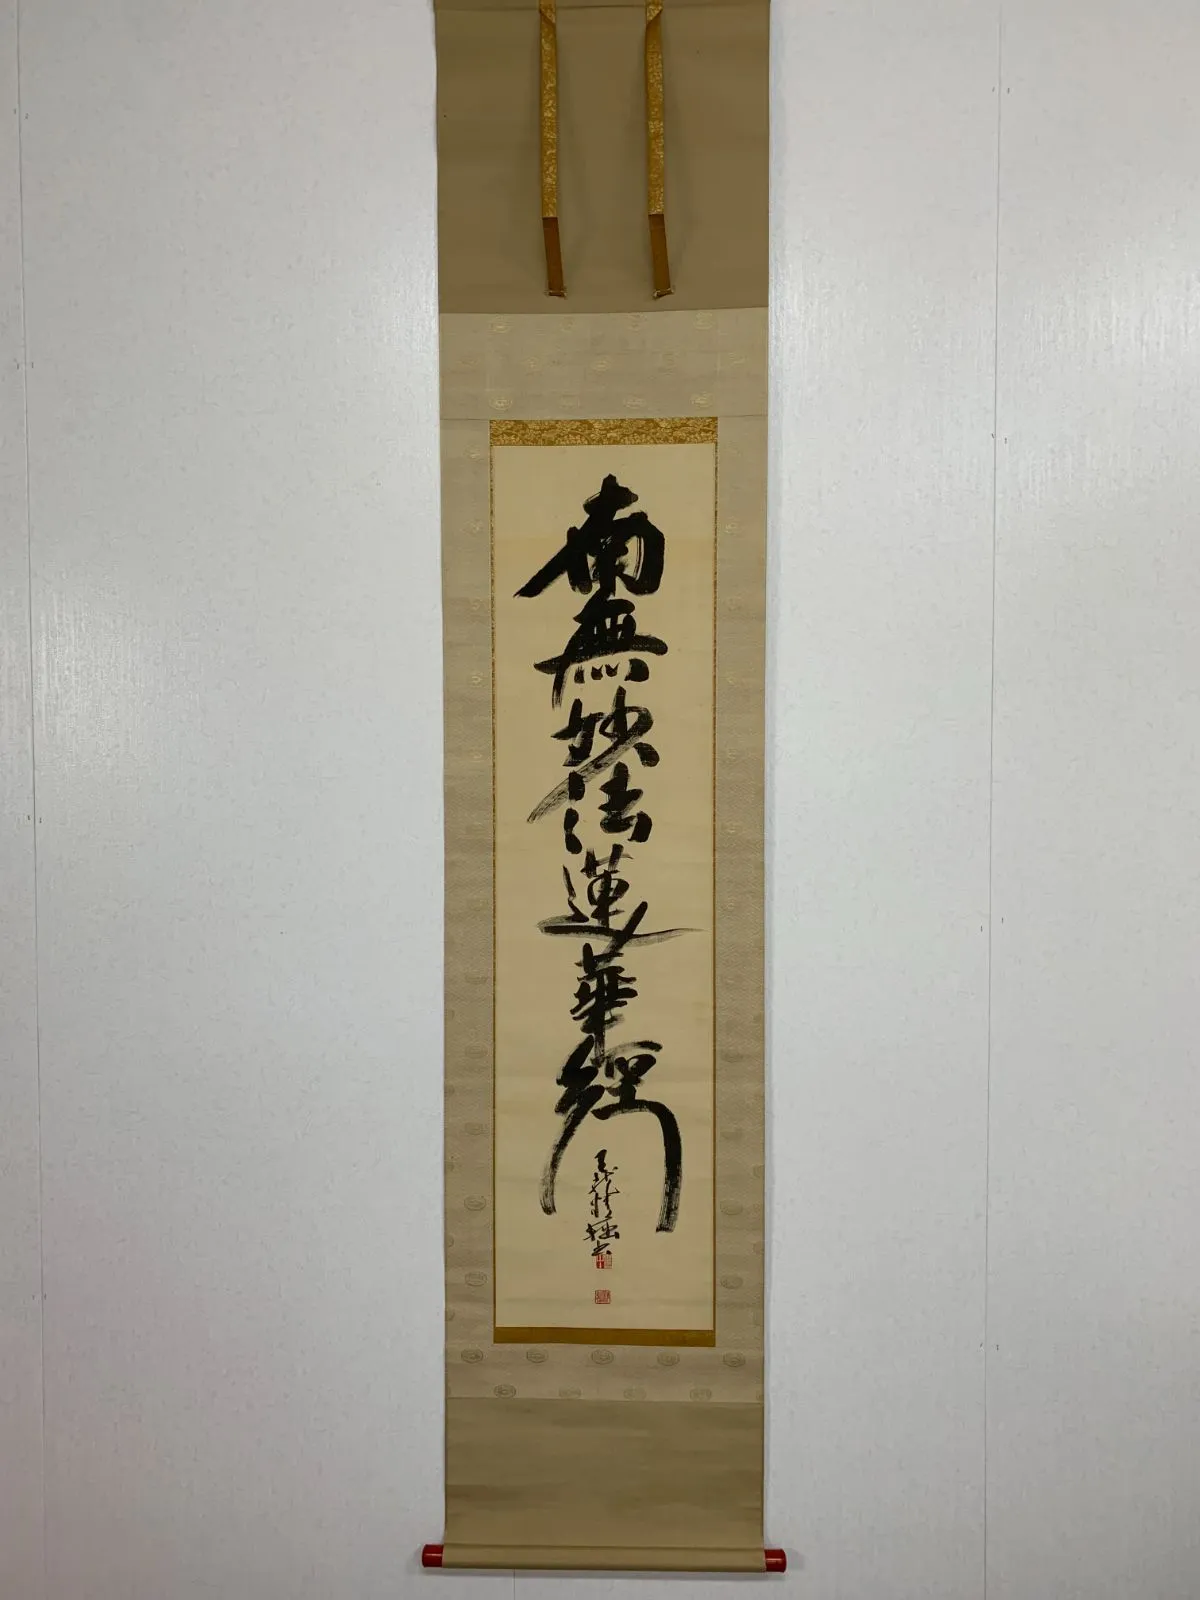 南無妙法蓮華經